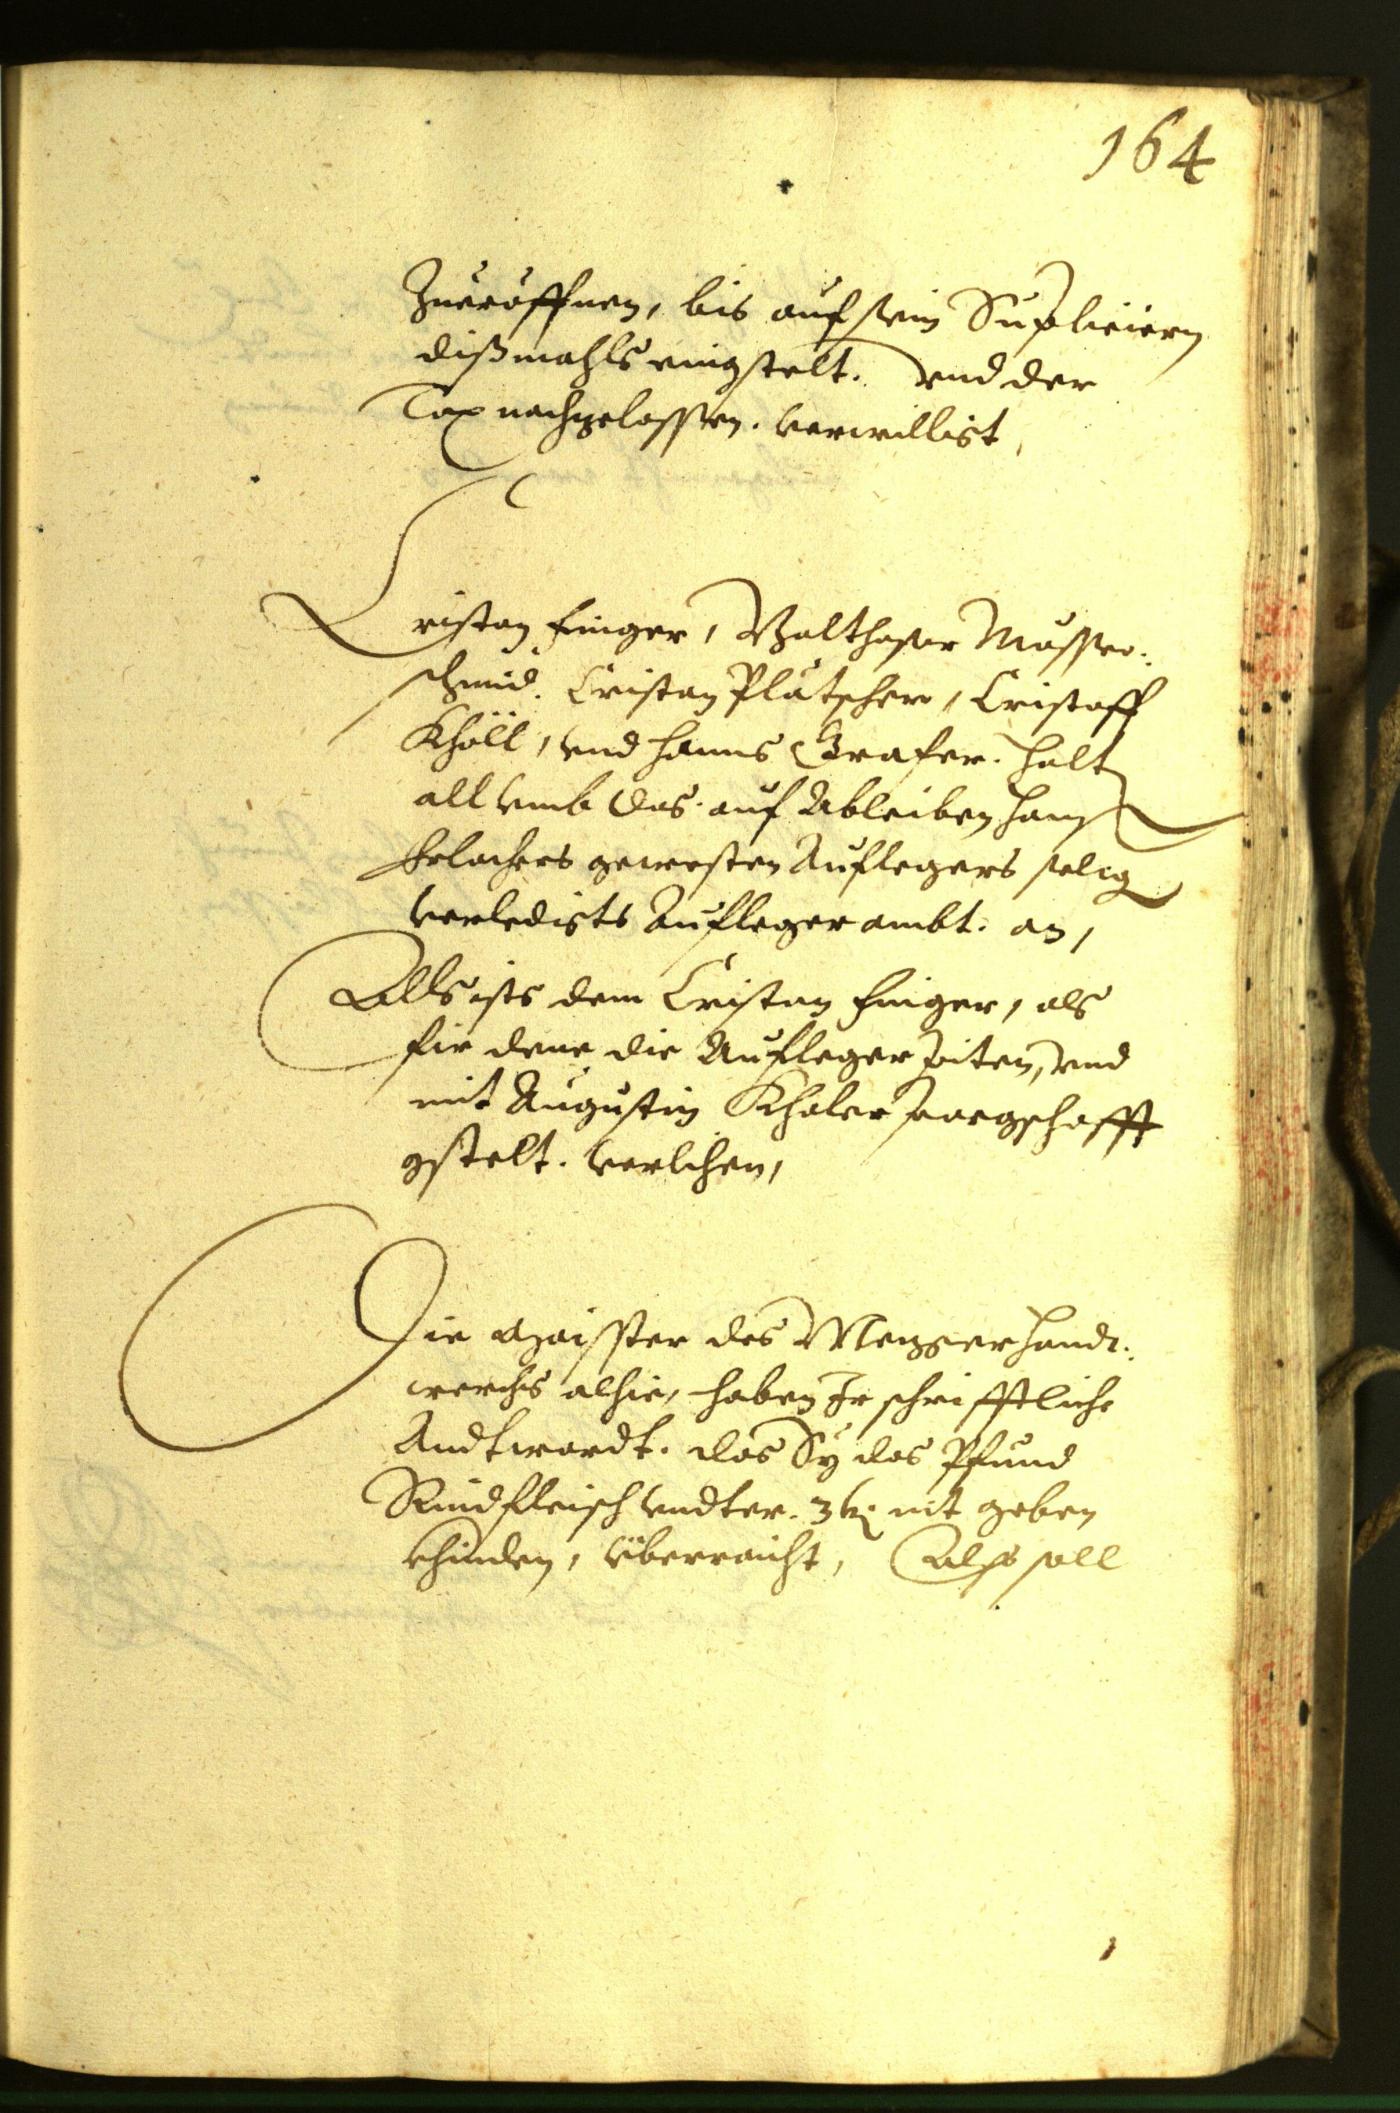 164
Zueröffnen, bis auf sein Supliciern
dißmahls eingstelt. vnd der
Tax nachgelassen. verwilligt,
Cristan Finger, Balthasar Messer-
schmid. Cristan Plätscher, Cristoff
Khöll, vnd Hanns Grafer. halt
all vmb das auf Ableiben Hanß
Erlachers gewesten Auflegers selig
verledigts Aufleger ambt. an,
Alls ists dem Cristan Finger, als
für dene die Aufleger piten, vnd
mit Augustin Khaler porgschafft
gstelt. verlihen,
Die Maister des Mezger Handt-
werchs alhie, haben Ir schrifftliche
Andtwordt. das Sy das Pfund
Rindfleisch vndter. 3 kr. nit geben
khinden, überraicht, Also soll